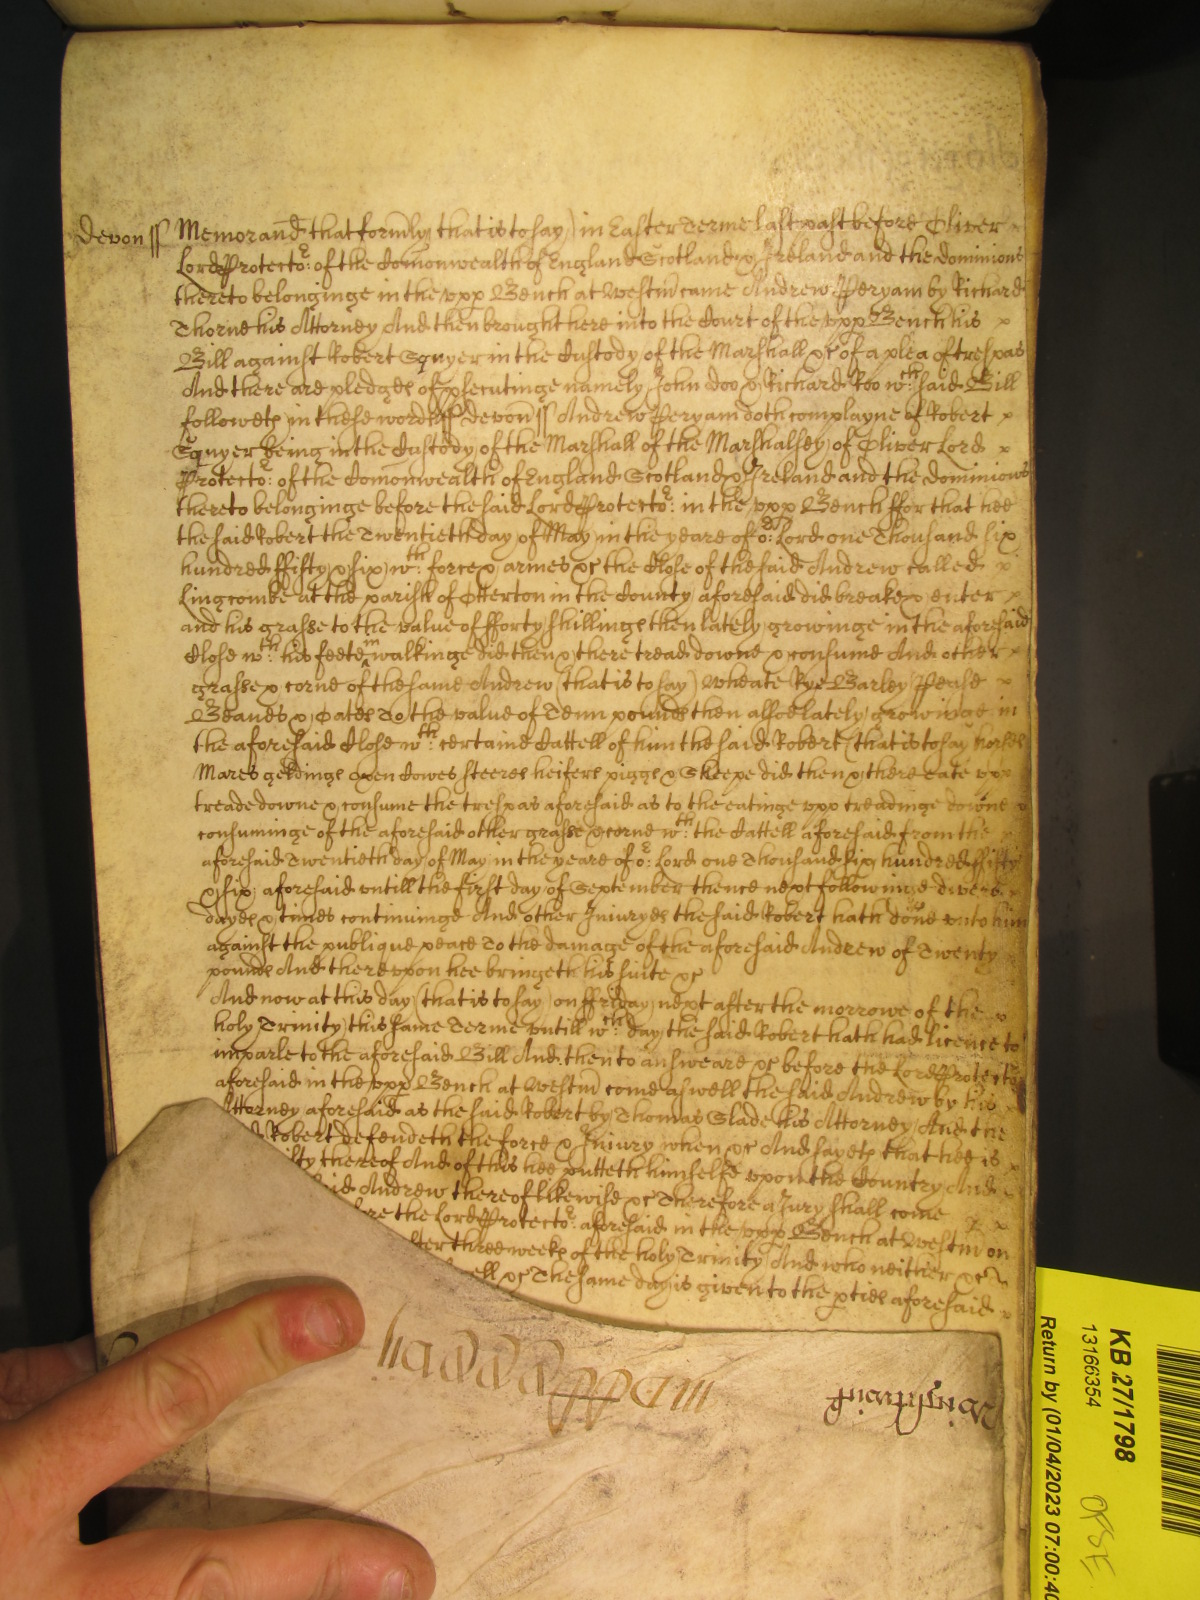 Devon ss Memorand that formly (that is to say) in Easter Terme last past before Oliver
Lord Protector: of the Comonwealth of England Scotland & Ireland and the dominions
thereto belonginge in the upp Bench at Westm came Andrew Peryam by Richard
Thorne his Attorney And then brought here into the Court of the upp Bench his
Bill against Robert Squyer in the Custody of the Marshall &c of a plea of trespas
And there are pledges of psecutinge namely John Doo & Richard Roo wch: said Bill
followeth in these words ss Devon ss Andrew Peryam doth complayne of Robert
Squyer being in the Custody of the Marshall of the Marshalsey of Oliver Lord
Protector: of the Comonwealth of England Scotland & Ireland and the dominions
thereto belonginge before the said Lord Protector: in the upp Bench ffor that hee
the said Robert the Twentieth day of May in the yeare of or: Lord one Thousand six
hundred ffifty & six wth: force & armes &c the Close of the said Andrew called
Lingcombe at the parish of Otterton in the County aforesaid did breake & enter
and his grasse to the value of fforty shillings then lately growinge in the aforesaid
Close wth: his feete in walkinge did then & there tread downe & consume And other
grasse & corne of the same Andrew (that is to say) Wheate Rye Barley Pease
Beanes & Oates To the value of Tenn pounds then alsoe lately growinge in
the aforesaid Close wth: certaine Cattell of him the said Robert (that is to say horses
Mares geldings oxen Cowes steeres heifers piggs & Sheepe did then & there eate upp
treade downe & consume the trespas aforesaid as to the eatinge upp treadinge downe &
consuminge of the aforesaid other grasse & corne wth: the Cattell aforesaid from the
aforesaid Twentieth day of May in the yeare of or: Lord one Thousand six hundred ffifty
& six aforesaid untill the first day of September thence next followinge divers
dayes & times continuinge And other Injuryes the said Robert hath done unto him
against the publique peace To the damage of the aforesaid Andrew of Twenty
pounds And thereuppon hee bringeth his suite &c
And now at this day (that is to say) on ffriday next after the morrowe of the
holy Trinity this same Terme untill wch: day the said Robert hath had licence to
imparle to the aforesaid Bill And then to answeare &c before the Lord Protector
aforesaid in the upp Bench at Westm come aswell the said Andrew by his
Attorney aforesaid as the said Robert by Thomas Slade his Attorney And the
Robert defendeth the force & Injury when &c And sayeth that hee is
thereof And of this hee putteth himselfe upon the Country And
Andrew thereof likewise &c Therefore a Jury shall come
the Lord Protector: aforesaid in the upp Bench at Westm on
three weeks of the holy Trinity And who neither &c
&c The same day is given to the pties aforesaid
KB 27/1798
13166354
Return by (01/04/2023 07:00:40